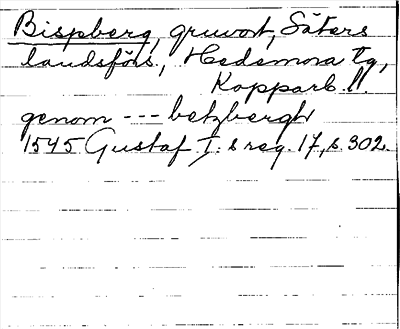 Bispberg, gruvort, Säters
landsförs., Hedemora tg,
Kopparb. l.
genom --- betzbergh
1545 Gustaf I:s reg. 17, s. 302.